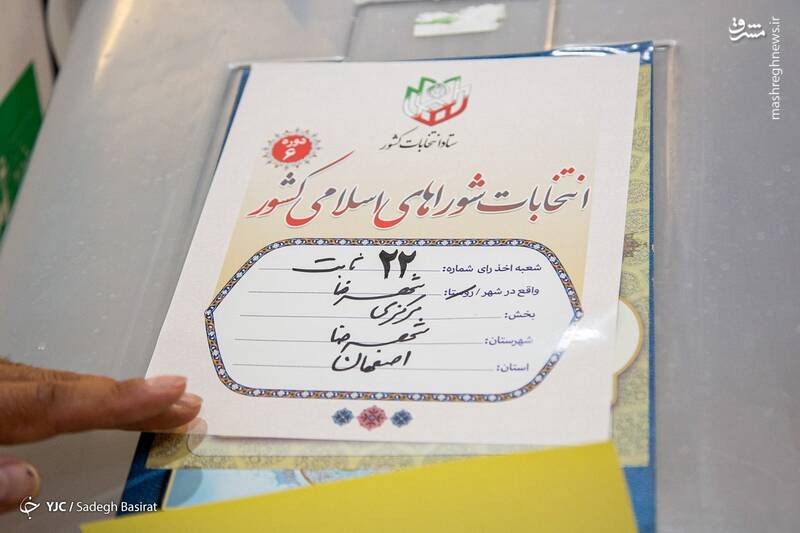 مشرق
mashreghnews.ir
ستاد انتخابات کشور
دوره
۶
انتخابات شوراهای اسلامی کشور
شعبه اخذ رای شماره: ۲۲ ثابت
واقع در شهر / روستا: شهرضا
بخش: مرکزی
شهرستان: شهرضا
استان: اصفهان
YJC / Sadegh Basirat